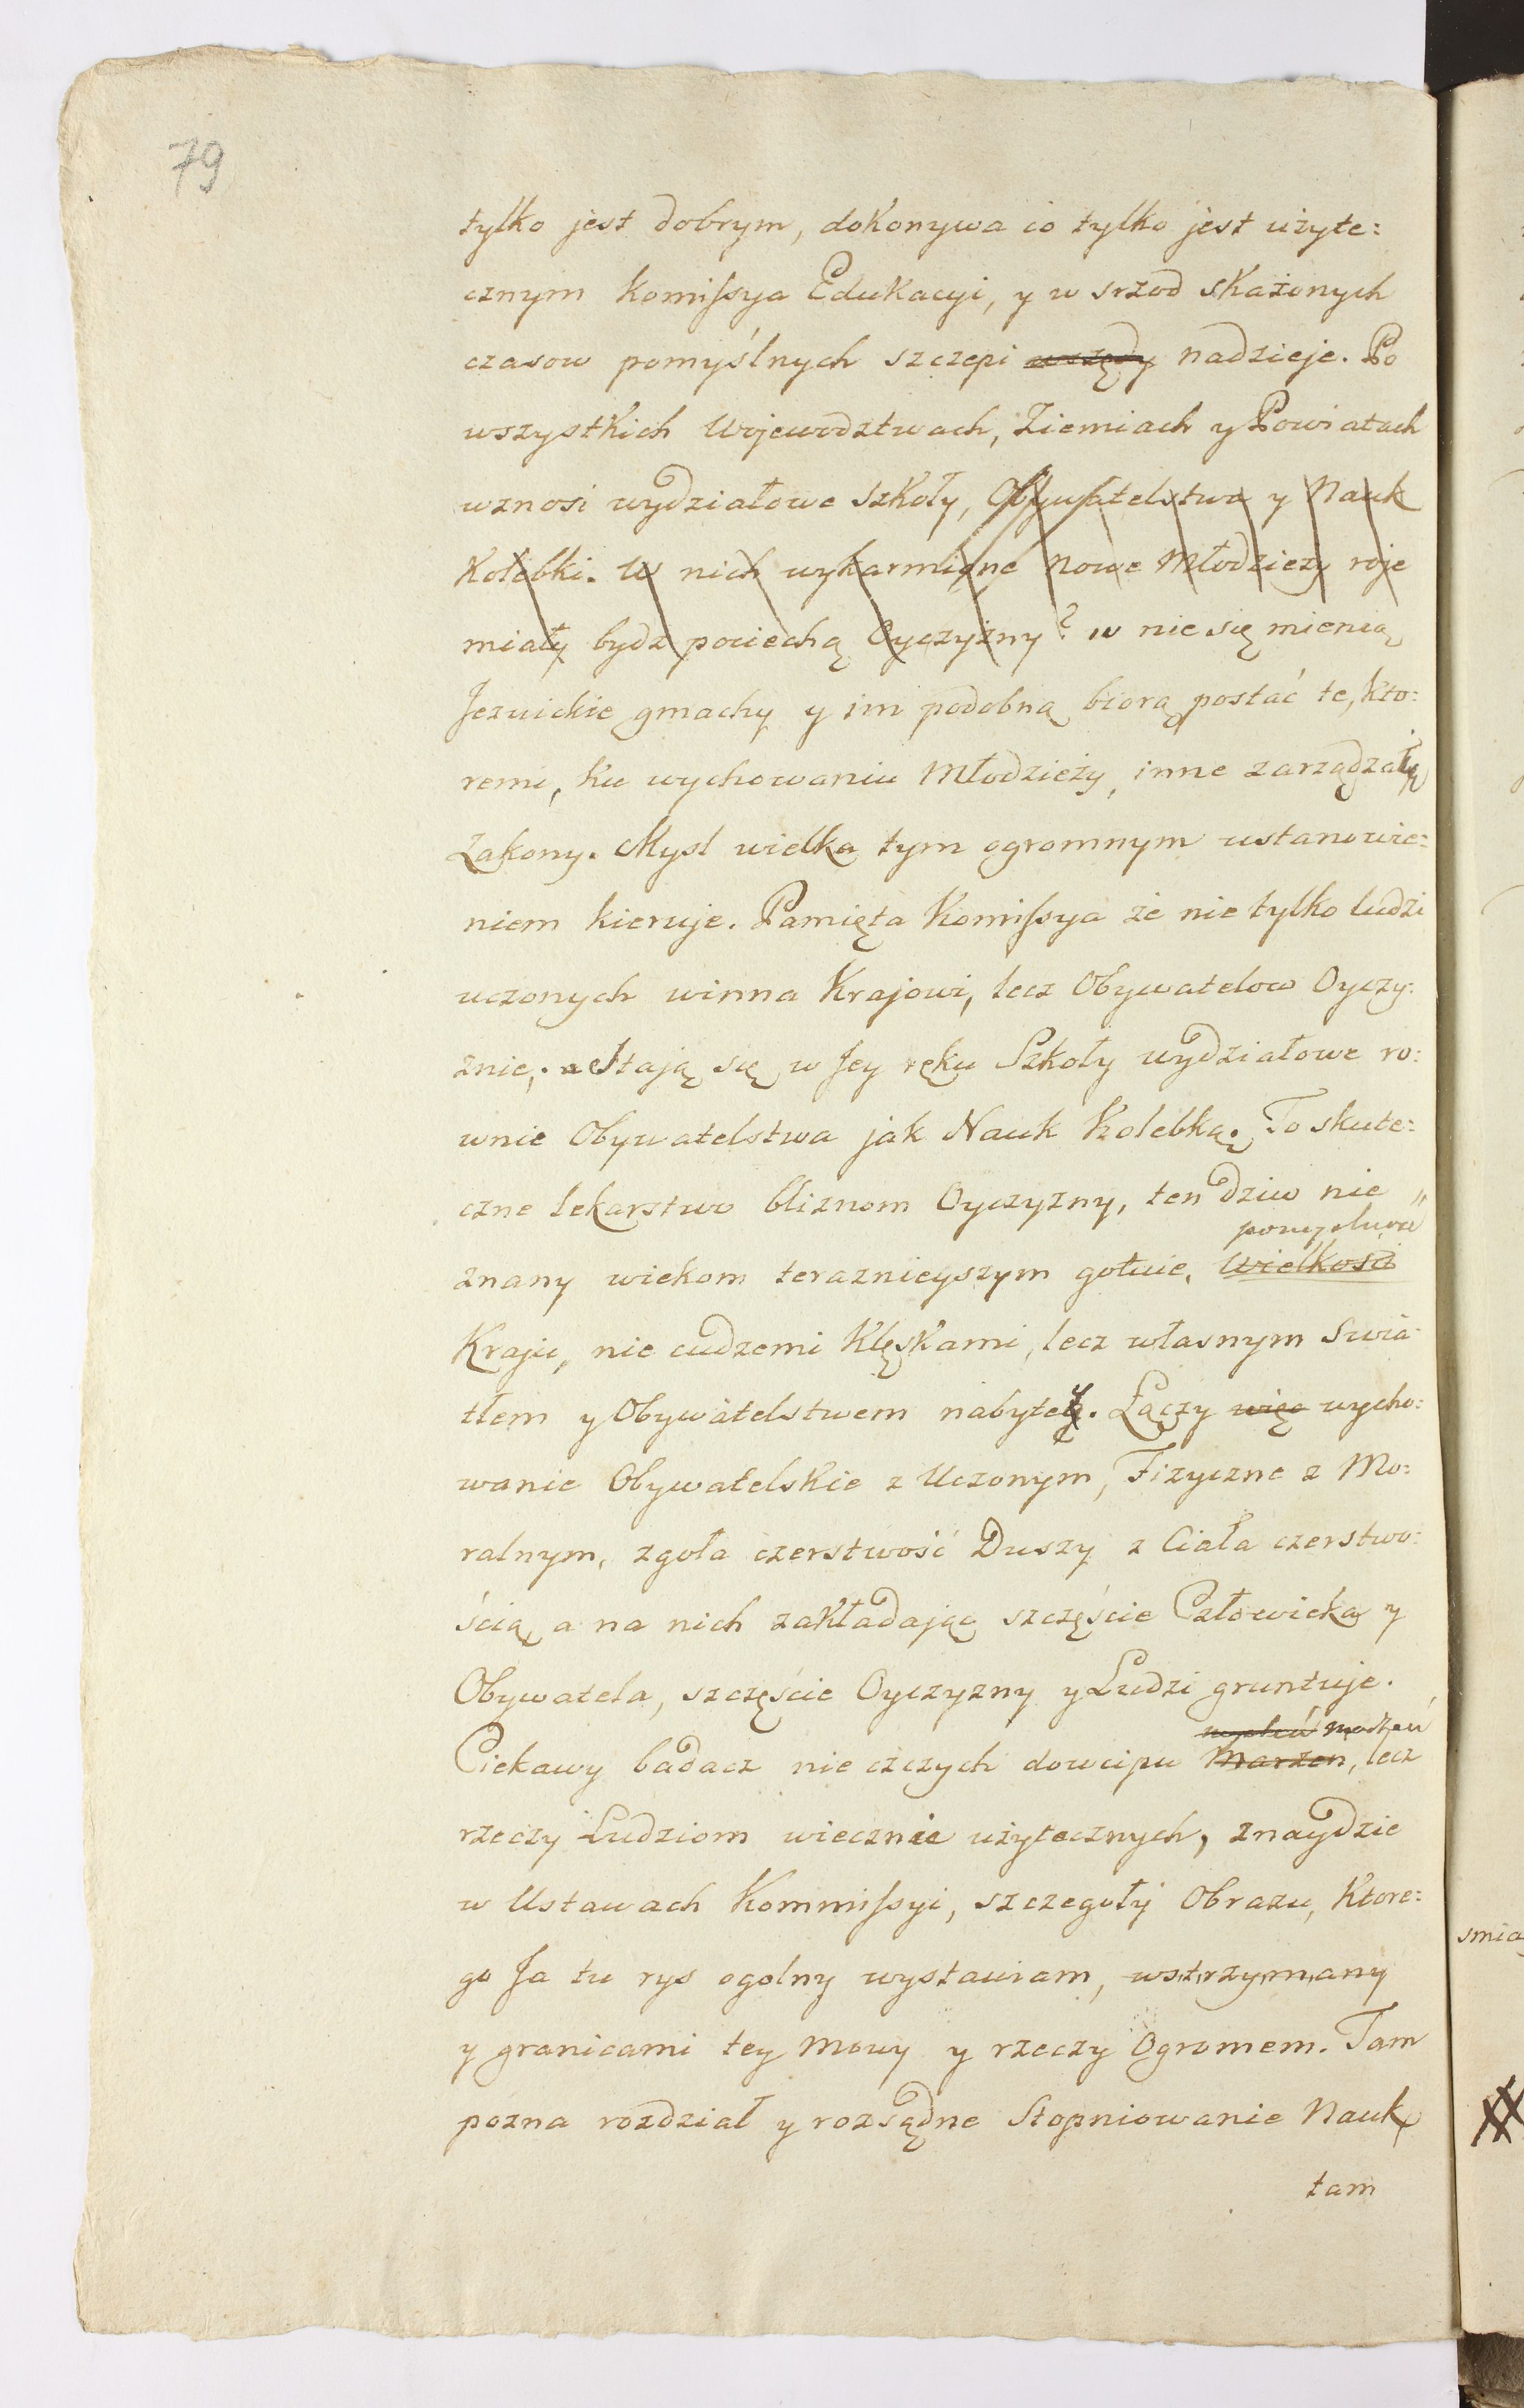 79
tylko jest dobrym, dokonywa co tylko jest użyte:
cznym Komissya Edukacyi, y w srzod skażonych
czasow pomyślnych szczepi wszędy nadzieje. Po
wszystkich Wojewodztwach, Ziemiach y Powiatach
wznosi wydziałowe szkoły, Obywatelstwa y Nauk
Kolebki. W nich wykarmione nowe Młodzieży roje
miały bydz pociechą Oyczyzny? w nie się mienią
Jezuickie gmachy y im podobną biorą postać te, kto:
remi, ku wychowaniu Młodzieży, inne zarządzały
Zakony. Mysl wielka tym ogromnym ustanowie:
niem kieruje. Pamięta Komissya że nie tylko ludzi
uczonych winna Krajowi, lecz Obywatelow Oyczy:
znie, a Stają się w Jey ręku Szkoły wydziałowe ro:
wnie Obywatelstwa jak Nauk Kolebką. To skute:
czne lekarstwo bliznom Oyczyzny, ten dziw nie "
pomyslność
znany wiekom terazniejszym gotuie, Wielkości
Kraju, nie cudzemi Klęskami, lecz własnym Swia:
tłem y Obywatelstwem nabytey. Łączy więc wycho:
wanie Obywatelskie z Uczonym, Fizyczne z Mo:
ralnym, zgoła czerstwość Duszy z Ciała czerstwo:
ścią, a na nich zakładając szczęście Człowieka y
Obywatela, szczęście Oyczyzny y Ludzi gruntuje.
Ciekawy badacz nie czczych dowcipu Marzen, lecz
rzeczy Ludziom wiecznie użytecznych, znaydzie
w Ustawach Kommissyi, szczegoły Obrazu, Ktore:
go Ja tu rys ogolny wystawiam, wstrzymany
y granicami tey Mowy y rzeczy Ogromem. Tam
pozna rozdział y rozsądne Stopniowanie Nauk
tam
smia